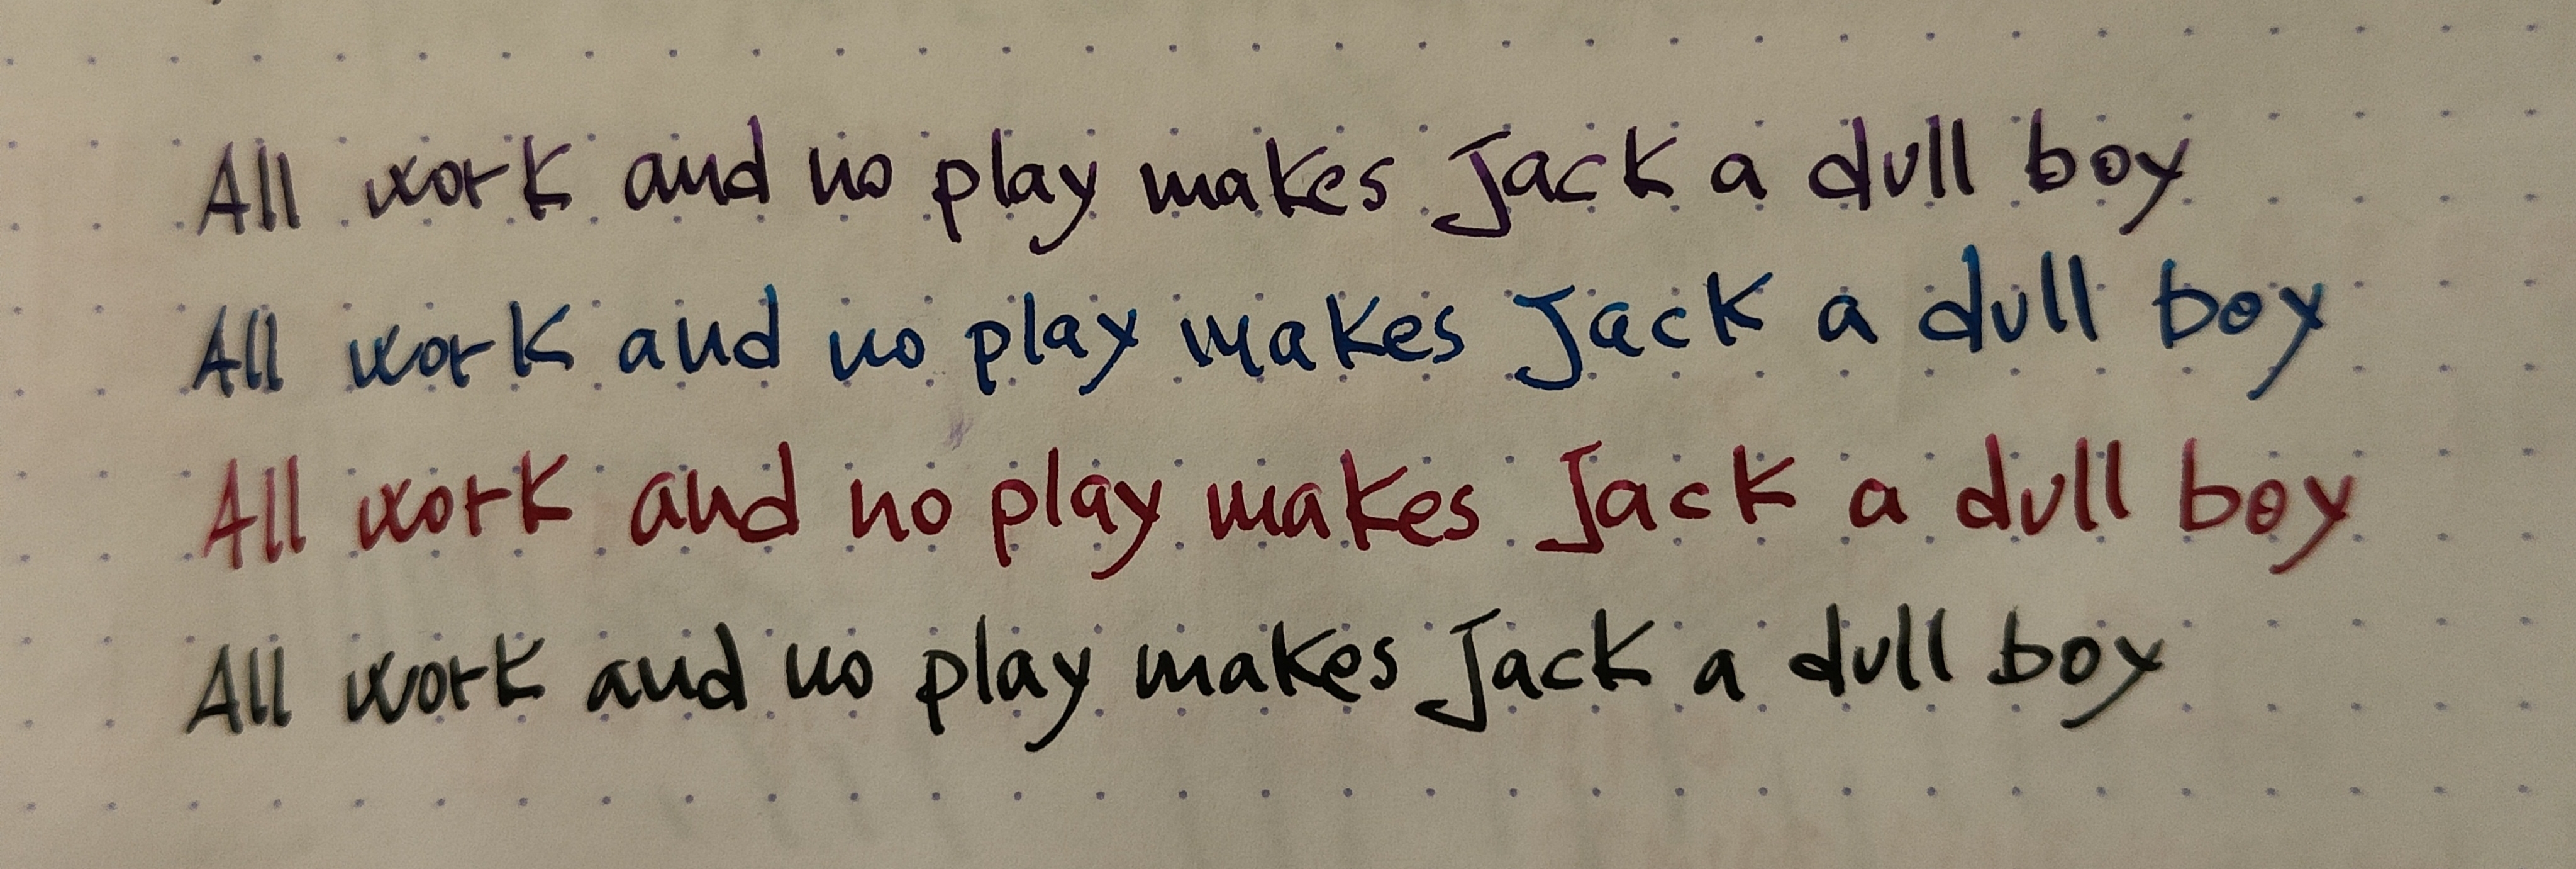 All work and no play makes Jack a dull boy
All work and no play makes Jack a dull boy
All work and no play makes Jack a dull boy
All work and no play makes Jack a dull boy